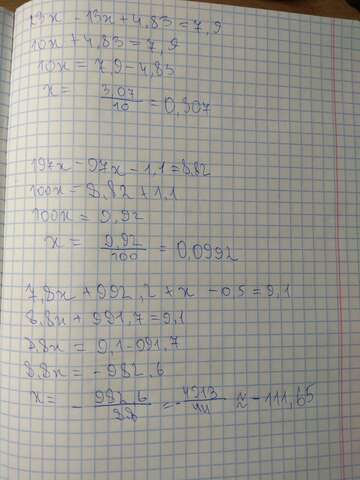 23x - 13x + 4,83 = 7,9
10x + 4,83 = 7,9
10x = 7,9 - 4,83
x = 3,07/10 = 0,307
197x - 97x - 1,1 = 8,82
100x = 8,82 + 1,1
100x = 9,92
x = 9,92/100 = 0,0992
7,8x + 992,2 + x - 0,5 = 9,1
8,8x + 991,7 = 9,1
8,8x = 9,1 - 991,7
8,8x = -982,6
x = - 982,6/8,8 = - 4913/44 ≈ -111,65